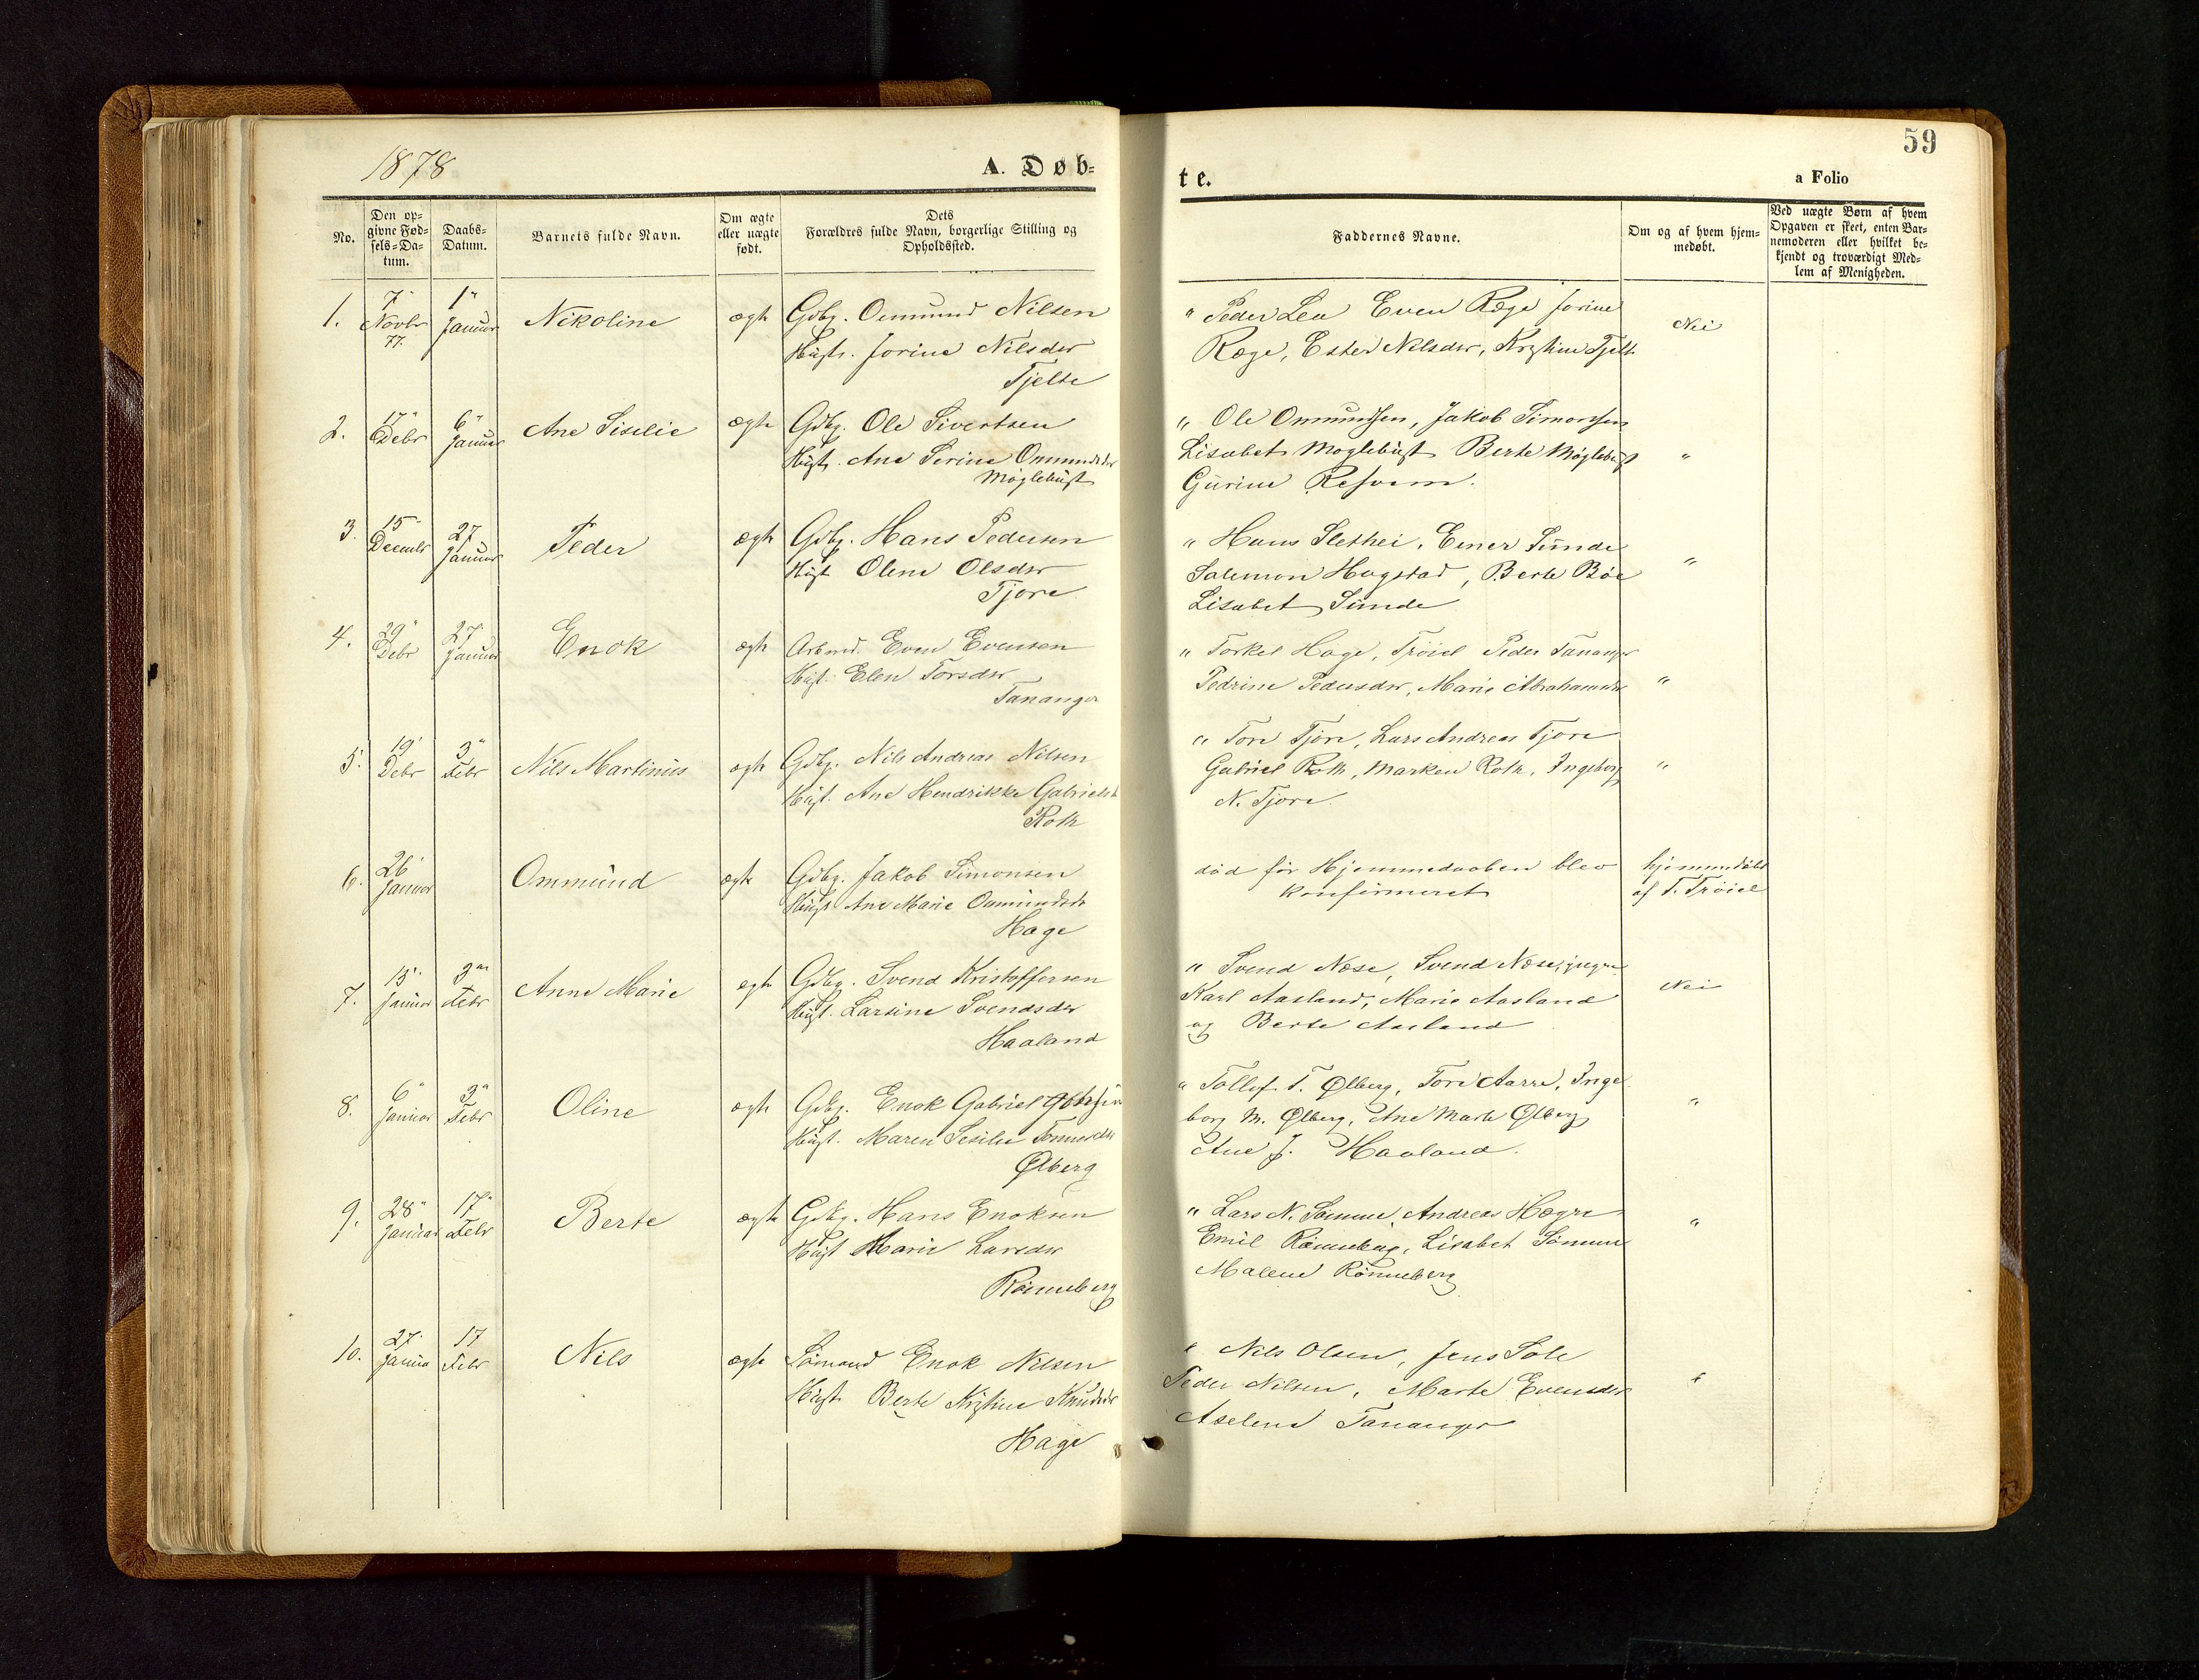 59
1878
A. Døb=
te.
a Folio
No.
Den op=
givne Fød=
sels=Da=
tum.
Daabs=
Datum.
Barnets fulde Navn.
Om ægte
eller uægte
født.
Dets
Forældres fulde Navn, borgerlige Stilling og
Opholdssted.
Faddernes Navne.
Om og af hvem hjem=
medøbt.
Ved uægte Børn af hvem
Opgaven er skeet, enten Bar=
nemoderen eller hvilket be=
kjendt og troværdigt Med=
lem af Menigheden.
1. 7" Novbr 77. 1" Januar Nikoline ægte Gdbg. Ommund Nilsen
Hust. Jorine Nilsdtr
Tjelte
" Peder Lea Even Ræge Jorine
Ræge, Ester Nilsdtr, Kristine Tjelt
Nei
2. 17" Debr 6" Januar Ane Siselie ægte Gdbg. Ole Sivertsen
Hust. Ane Serine Ommundsdtr
Møglebust
" Ole Ommundsen, Jakob Simonsen
Lisabet Møglebust Berte Møglebust "
Gurine
3. 15" Decembr 27 Januar Peder ægte Gdbg. Hans Pedersen
Hust Olene Olsdtr
Tjora
" Hans Slethei, Einer Sunde
Salemon Hogstad, Berte Böe "
Lisabet Sunde
4. 29" Debr 27" Januar Enok ægte Arbmd. Even Evensen
Hust. Elen Torsdtr
Tananger
" Torkel Hage, Tröiel Peder Tananger
Pedrine Pedersdtr, Marie Abrahamsdtr "
5. 19' Debr 3" Febr Nils Martinus ægte Gdbg. Nils Andreas Nilsen
Hust. Ane Hendrikke Gabrielsd
Roth
" Tore Tjore, Lars Andreas Tjora
Gabriel Roth, Marken Roth, Ingeborg "
N. Tjora.
6. 26' Januar Ommund ægte Gdbg. Jakob Simonsen
Hust Ane Marie Ommundsdt
Hage
død før Hjemmedaaben blev
konfirmeret
hjemmedöbt
af T. Tröiel
7. 15" Januar 3" Febr Anne Marie ægte Gdbg. Svend Kristoffersen
Hust. Larsine Svendsdtr
Haaland
" Svend Næse, Svend Næse, yngre
Karl Aasland, Marie Aasland
og Berte Aasland
Nei
8. 6" Januar 3" Febr Oline ægte Gdbg. Enok Gabriel
Hust. Maren Sesilie
Ølberg
" Tollef T. Ølberg, Tore Aarre, Inge
borg M. Ølberg, Ane Marte Ølberg "
Ane J. Haaland.
9. 28" Januar 17" Febr Berte ægte Gdbg. Hans Enoksen
Hust Marie Larsdtr
Rönneberg
" Lars N. Sömme, Andreas Hægre
Emil Rönneberg, Lisabet Sömme "
Malene Rönneberg
10. 27' Janua 17 Febr Nils ægte Sömand Enok Nilsen
Hust Berte Kristine Knudsdtr
Hage
" Nils Olsen, Jens Sole
Peder Nilsen, Marte Evensdtr "
Aselena Tananger